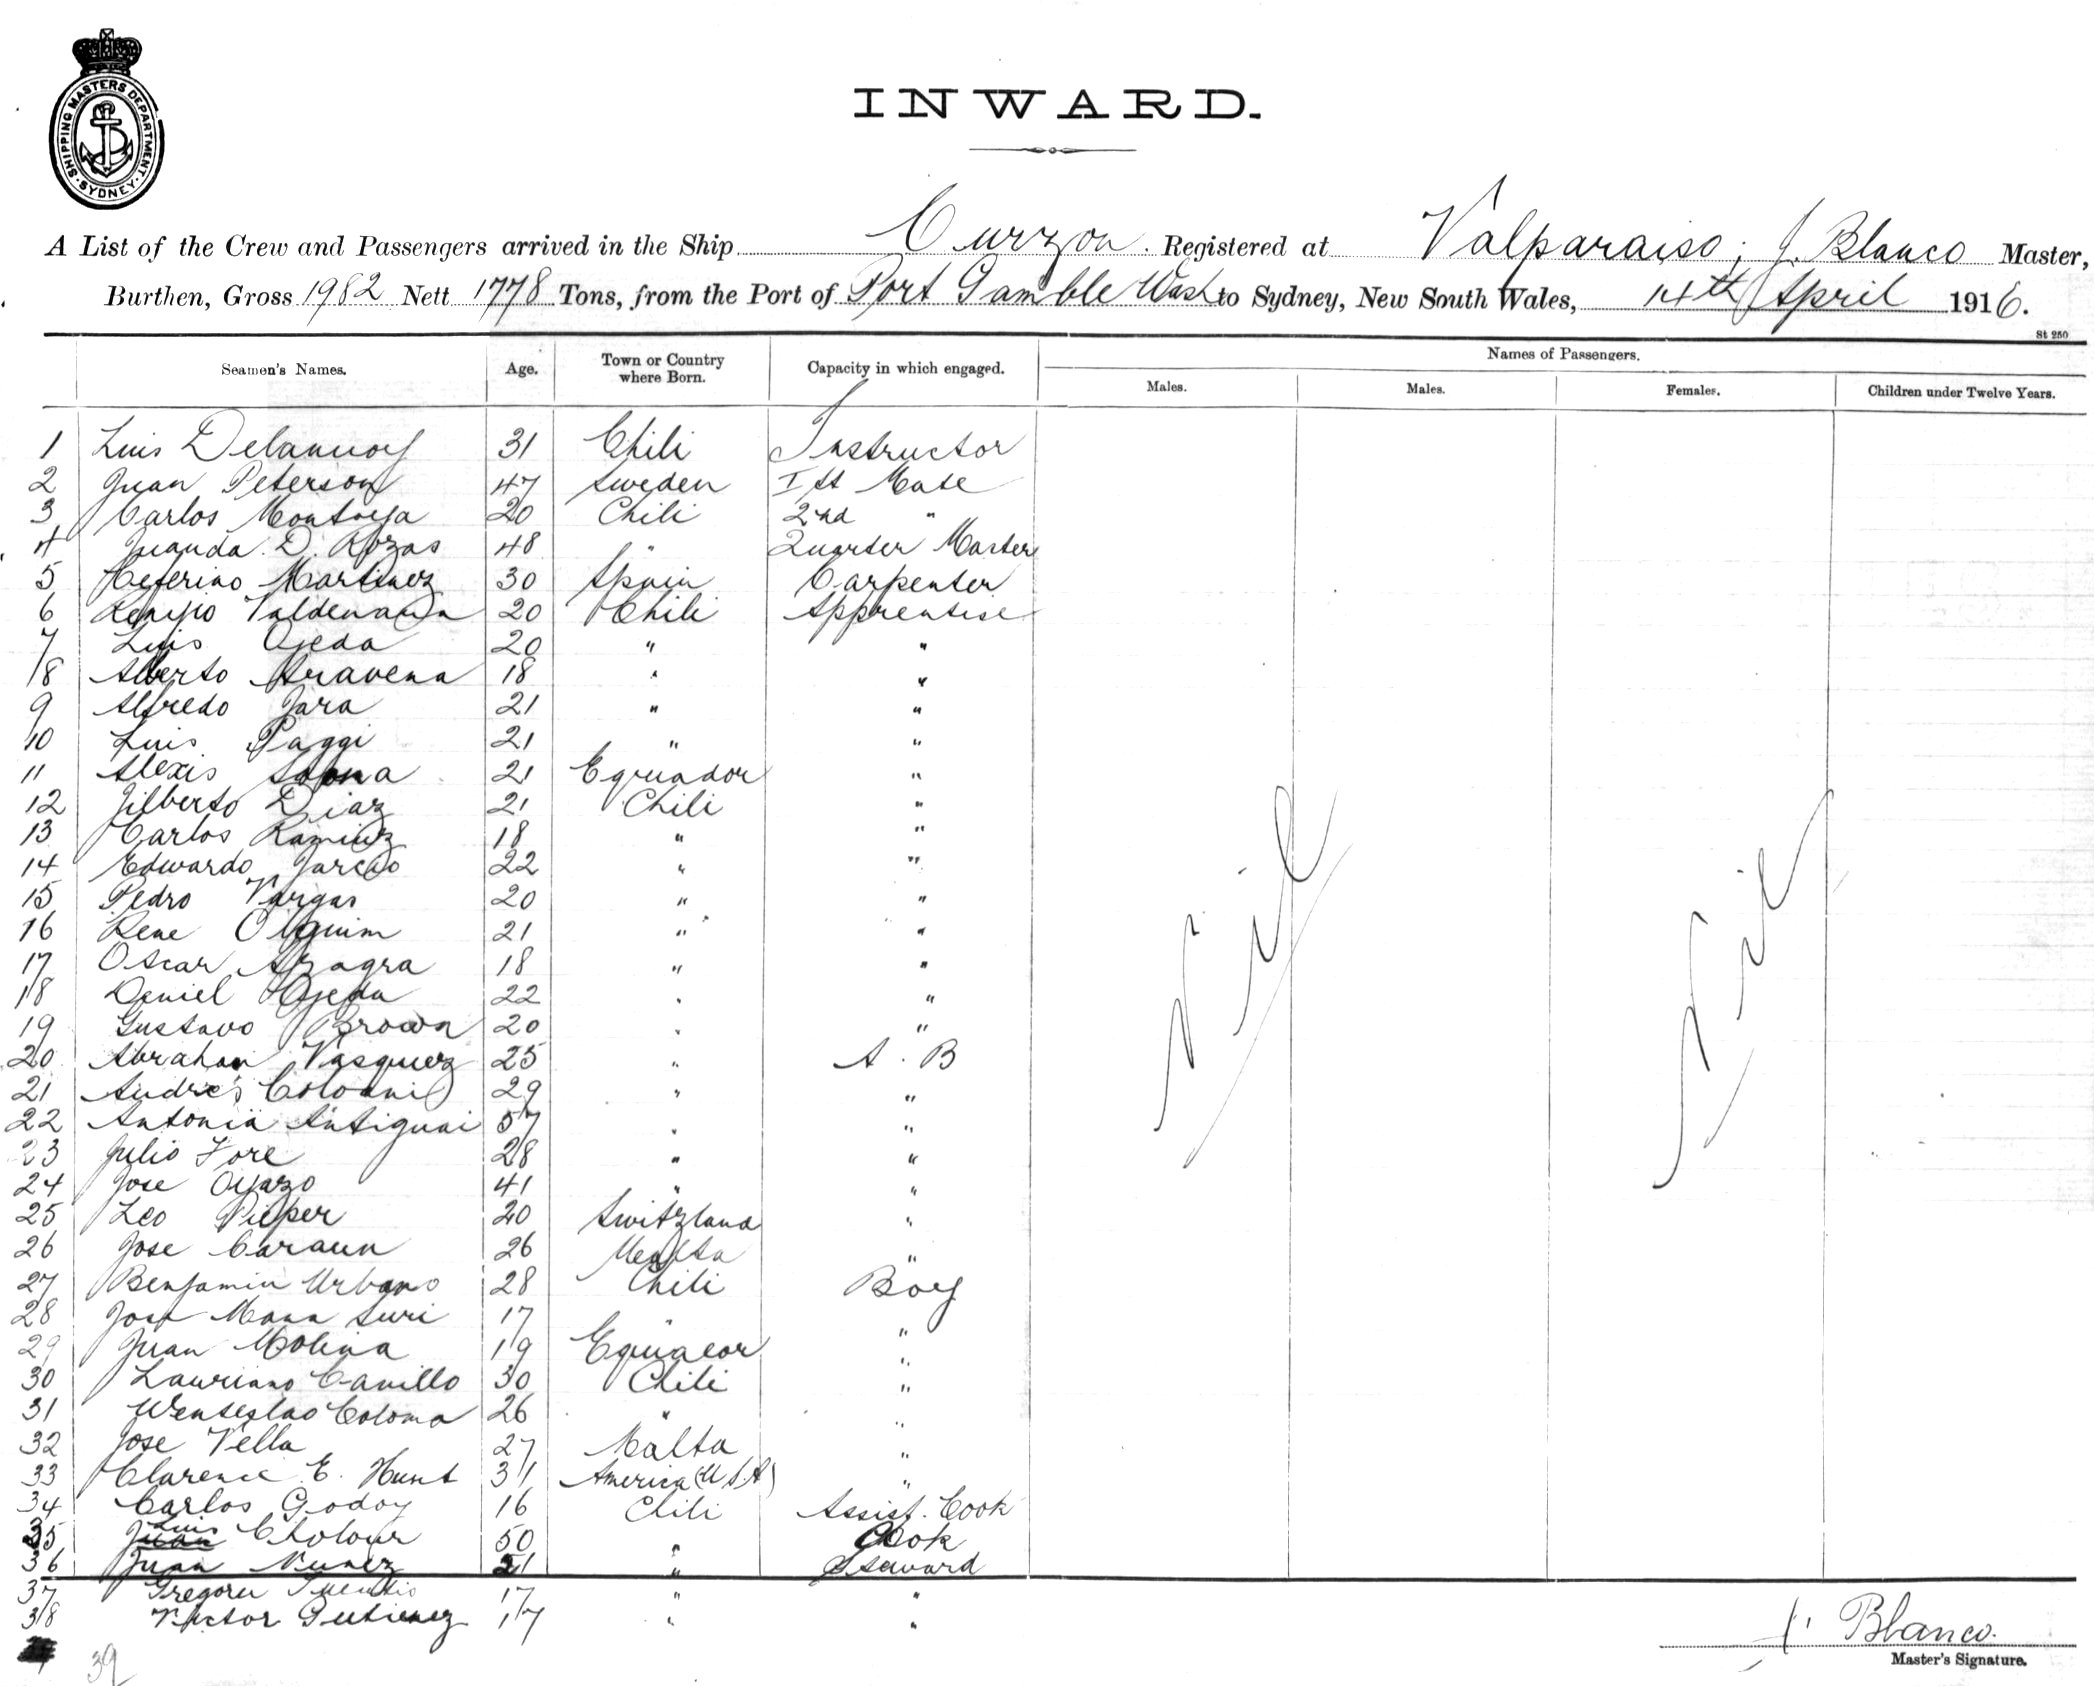 SHIPPING MASTERS DEPARTMENT · SYDNEY ·
INWARD.
A List of the Crew and Passengers arrived in the Ship Curzon. Registered at Valparaiso; J. Blanco Master,
Burthen, Gross 1982 Nett 1778 Tons, from the Port of Port Gamble Wash to Sydney, New South Wales, 14th April 1916.
St 250
Seamen's Names. Age. Town or Country where Born. Capacity in which engaged. Names of Passengers.
Males. Males. Females. Children under Twelve Years.
1 Luis Delannoy 31 Chili Instructor
2 Juan Peterson 47 Sweden 1st Mate
3 Carlos Montoya 20 Chili 2nd "
4 Juanda D. Rozas 48 " Quarter Master
5 Ceferino Martinez 30 Spain Carpenter
6 20 Chili Apprentise
7 Luis Ojeda 20 " "
8 Alberto Aravena 18 " "
9 Alfredo Jara 21 " "
10 Luis Paggi 21 " "
11 Alexis 21 Equador "
12 Gilberto Diaz 21 Chili "
13 Carlos Ramirez 18 " "
14 Edwardo 22 " "
15 Pedro Vargas 20 " "
16 Rene Olguim 21 " "
17 Oscar Azagra 18 " "
18 Daniel Ojeda 22 " "
19 Gustavo Brown 20 " "
20 Abrahan Vasquez 25 " A. B
21 Andres 29 " "
22 Antonia Antiguai 57 " "
23 Julio Fore 28 " "
24 Jose Oyarzo 41 " "
25 Leo Pieper 20 Switzland "
26 Jose Caraun 26 Malta "
27 Benjamin Urbano 28 Chili Boy
28 Jose 17 " "
29 Juan Molina 19 "
30 Lauriano Canillo 30 Chili "
31 Wenseslao Coloma 26 " "
32 Jose Vella 27 Malta "
33 Clarence E. Hunt 31 America (U.S.A) "
34 Carlos Godoy 16 Chili Assist. Cook
35 Luis Cholour 50 " Cook
36 Juan Nunez 21 " Steward
37 17 " "
38 Victor Gutierrez 17 " "
39
Nil
Nil
J. Blanco.
Master's Signature.